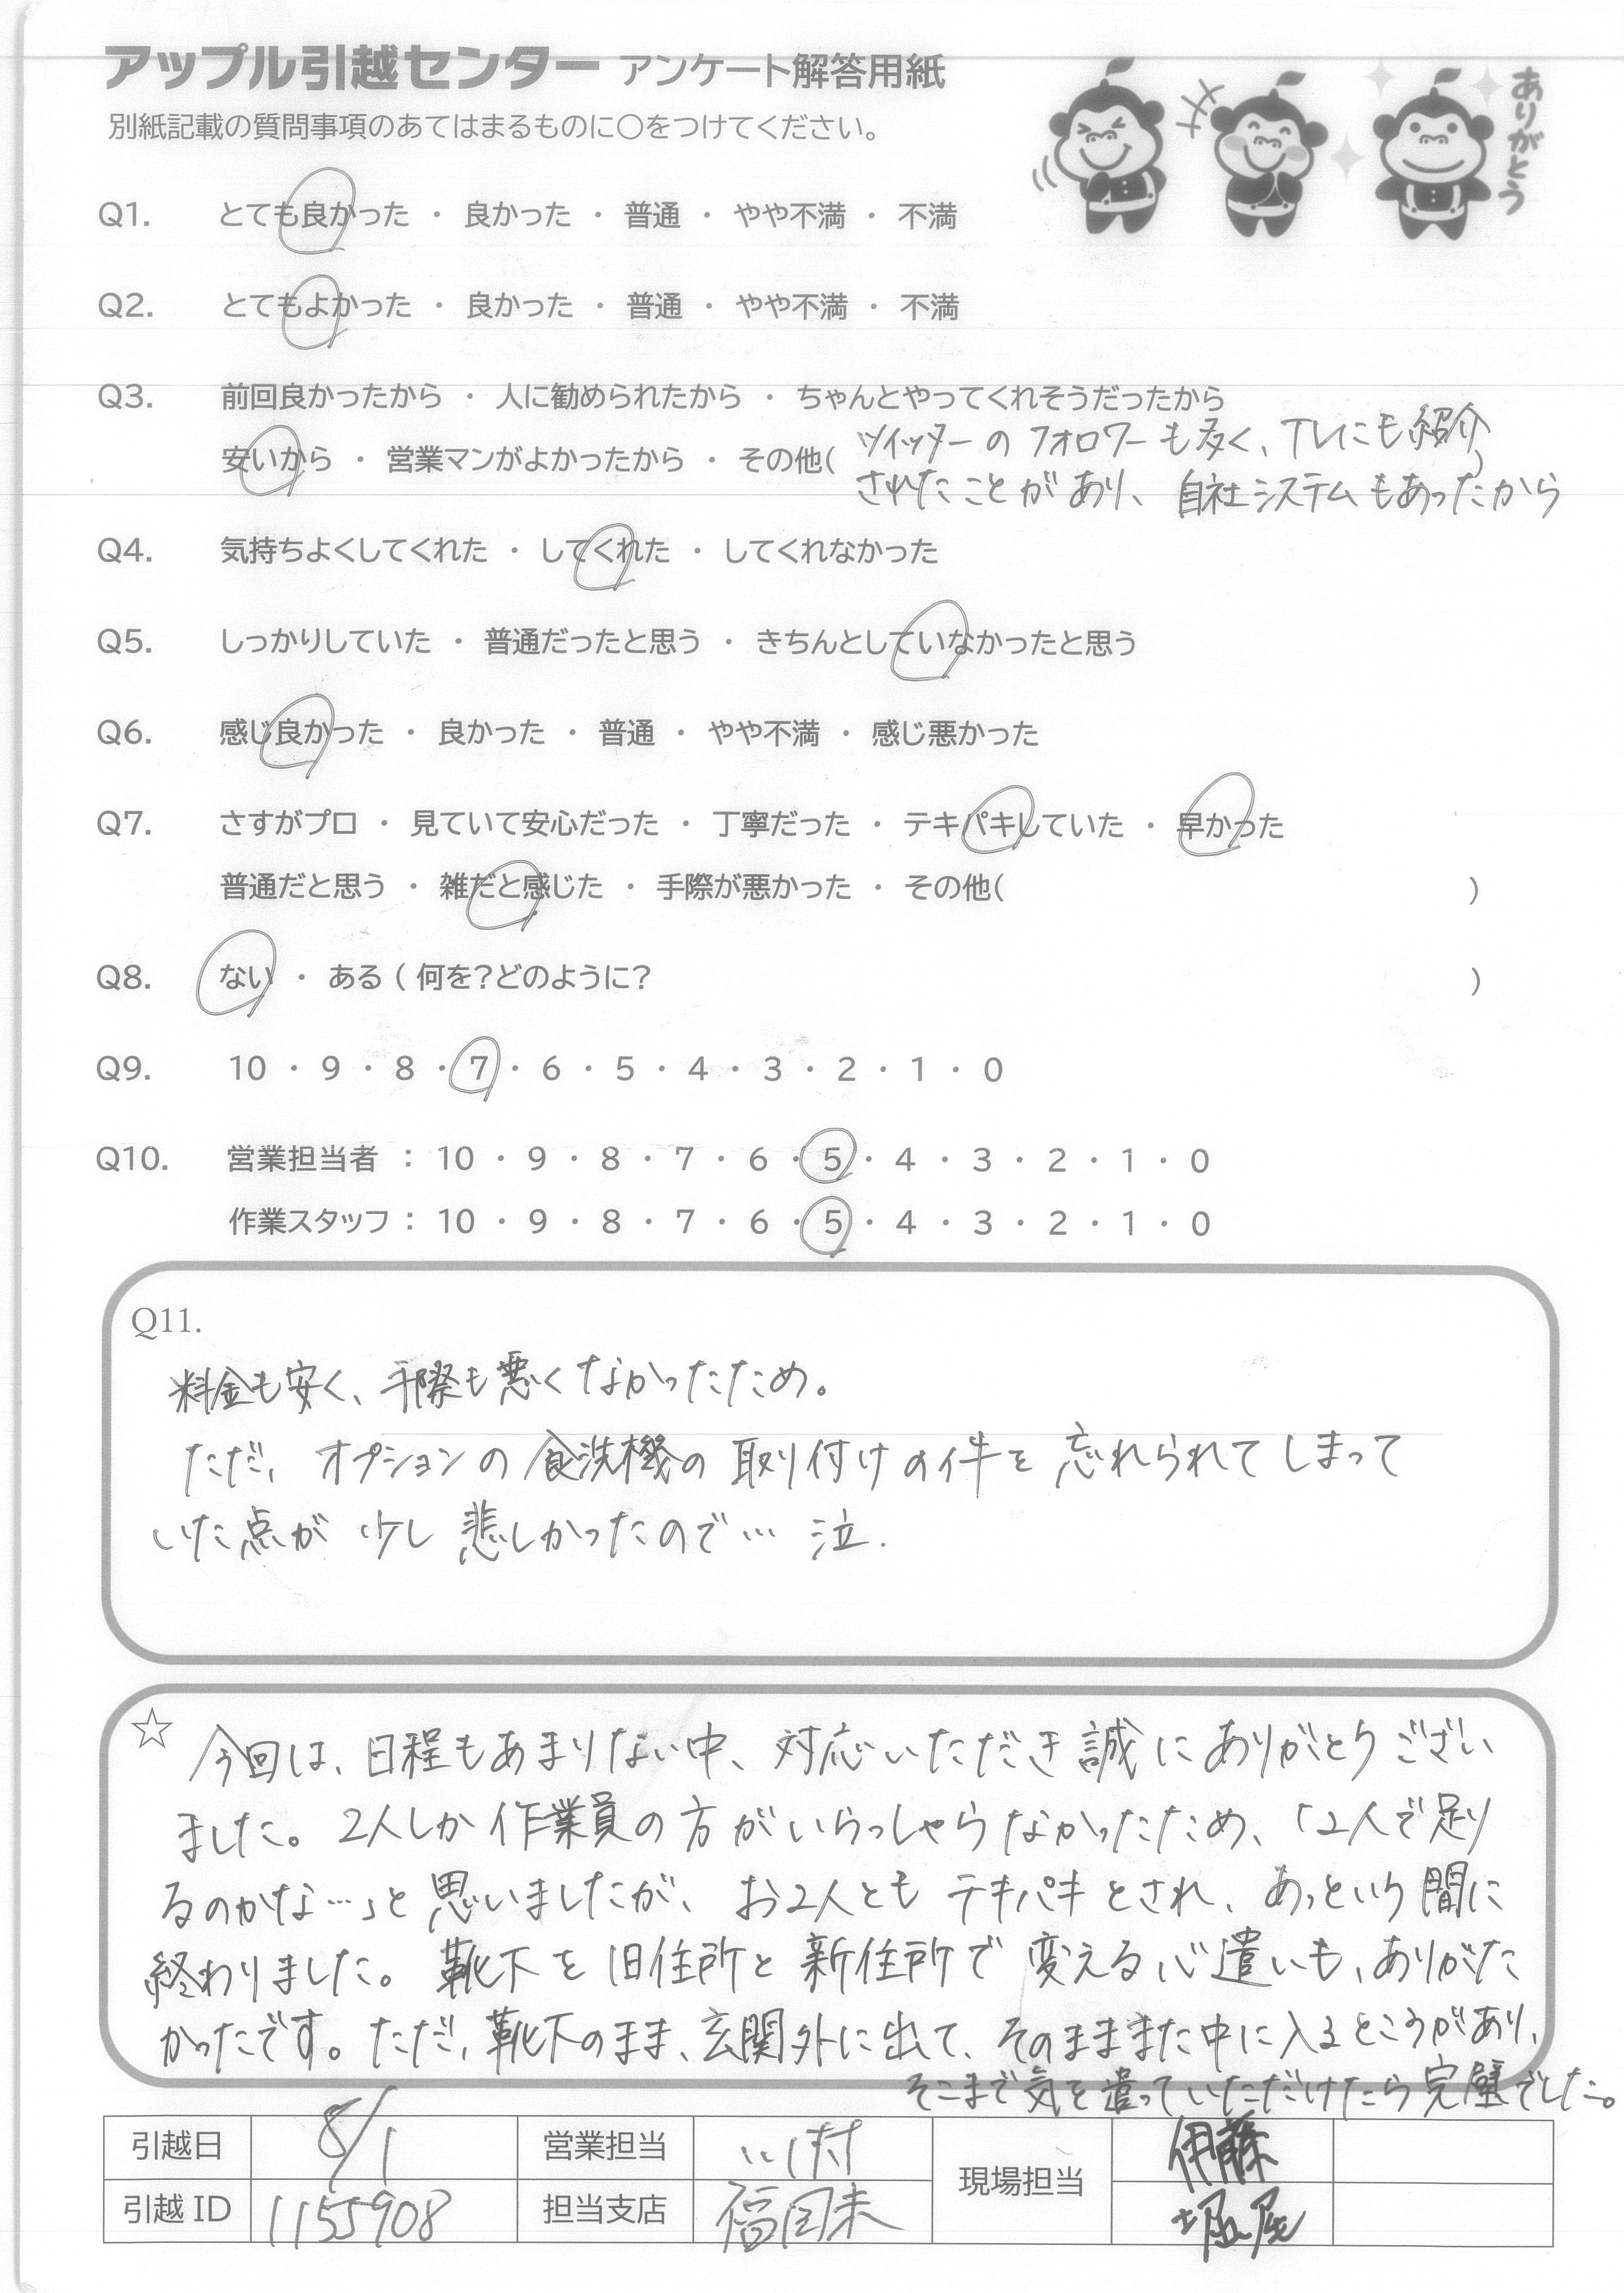 アップル引越センター アンケート解答用紙
別紙記載の質問事項のあてはまるものに○をつけてください。
ありがとう
Q1. とても良かった ・ 良かった ・ 普通 ・ やや不満 ・ 不満
Q2. とてもよかった ・ 良かった ・ 普通 ・ やや不満 ・ 不満
Q3. 前回良かったから ・ 人に勧められたから ・ ちゃんとやってくれそうだったから
安いから ・ 営業マンがよかったから ・ その他( ツイッターのフォロワーも多く、TVにも紹介 )
されたことがあり、自社システムもあったから
Q4. 気持ちよくしてくれた ・ してくれた ・ してくれなかった
Q5. しっかりしていた ・ 普通だったと思う ・ きちんとしていなかったと思う
Q6. 感じ良かった ・ 良かった ・ 普通 ・ やや不満 ・ 感じ悪かった
Q7. さすがプロ ・ 見ていて安心だった ・ 丁寧だった ・ テキパキしていた ・ 早かった
普通だと思う ・ 雑だと感じた ・ 手際が悪かった ・ その他( )
Q8. ない ・ ある ( 何を?どのように? )
Q9. 10 ・ 9 ・ 8 ・ 7 ・ 6 ・ 5 ・ 4 ・ 3 ・ 2 ・ 1 ・ 0
Q10. 営業担当者 : 10 ・ 9 ・ 8 ・ 7 ・ 6 ・ 5 ・ 4 ・ 3 ・ 2 ・ 1 ・ 0
作業スタッフ : 10 ・ 9 ・ 8 ・ 7 ・ 6 ・ 5 ・ 4 ・ 3 ・ 2 ・ 1 ・ 0
Q11.
料金も安く、手際も悪くなかったため。
ただ、オプションの食洗機の取り付けの件を忘れられてしまって
いた点が少し悲しかったので… 泣.
☆ 今回は、日程もあまりない中、対応いただき誠にありがとうござい
ました。2人しか作業員の方がいらっしゃらなかったため、「2人で足り
るのかな…」と思いましたが、お2人ともテキパキとされ、あっという間に
終わりました。靴下を旧住所と新住所で変える心遣いも、ありがた
かったです。ただ、靴下のまま、玄関外に出て、そのまままた中に入るところがあり、
そこまで気を遣っていただけたら完璧でした。
引越日 8/1 営業担当 現場担当 伊藤
引越ID 1155908 担当支店 堀尾